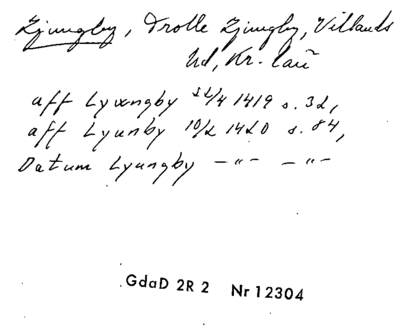 Ljungby, Trolle Ljungby, Villands
hd, Kr. län
aff Lywngby 22/4 1419 s. 32,
aff Lyunby 10/2 1420 s. 84,
Datum Lyungby -"- -"-
GdaD 2R 2 Nr 12304